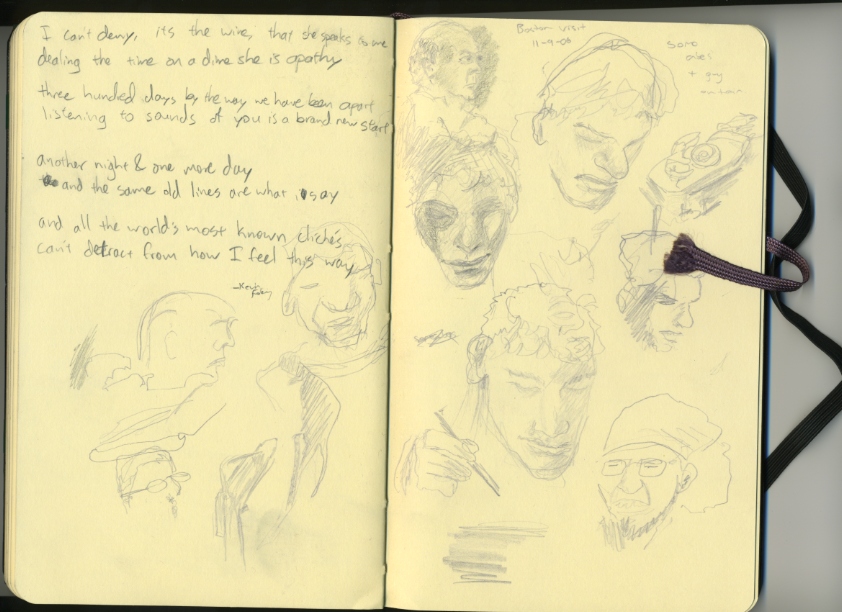 I can't deny, its the wire, that she speaks is me
dealing the time on a dime she is apathy
three hundred days by the way we have been apart
listening to sounds of you is a brand new start
another night & one more day
and the same old lines are what i say
and all the world's most known cliché's
can't detract from how I feel this way
Boston visit
11-9-08